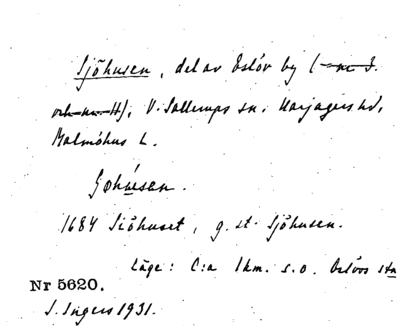 Sjöhusen, del av Eslöv by (
), V. Sallerups sn. Harjagers hd,
Malmöhus l.
1684 Siöhuset, g. st. Sjöhusen.
Läge: C:a 1 km. s.o. Eslövs stn
Nr 5620.
S. Ingers 1931.